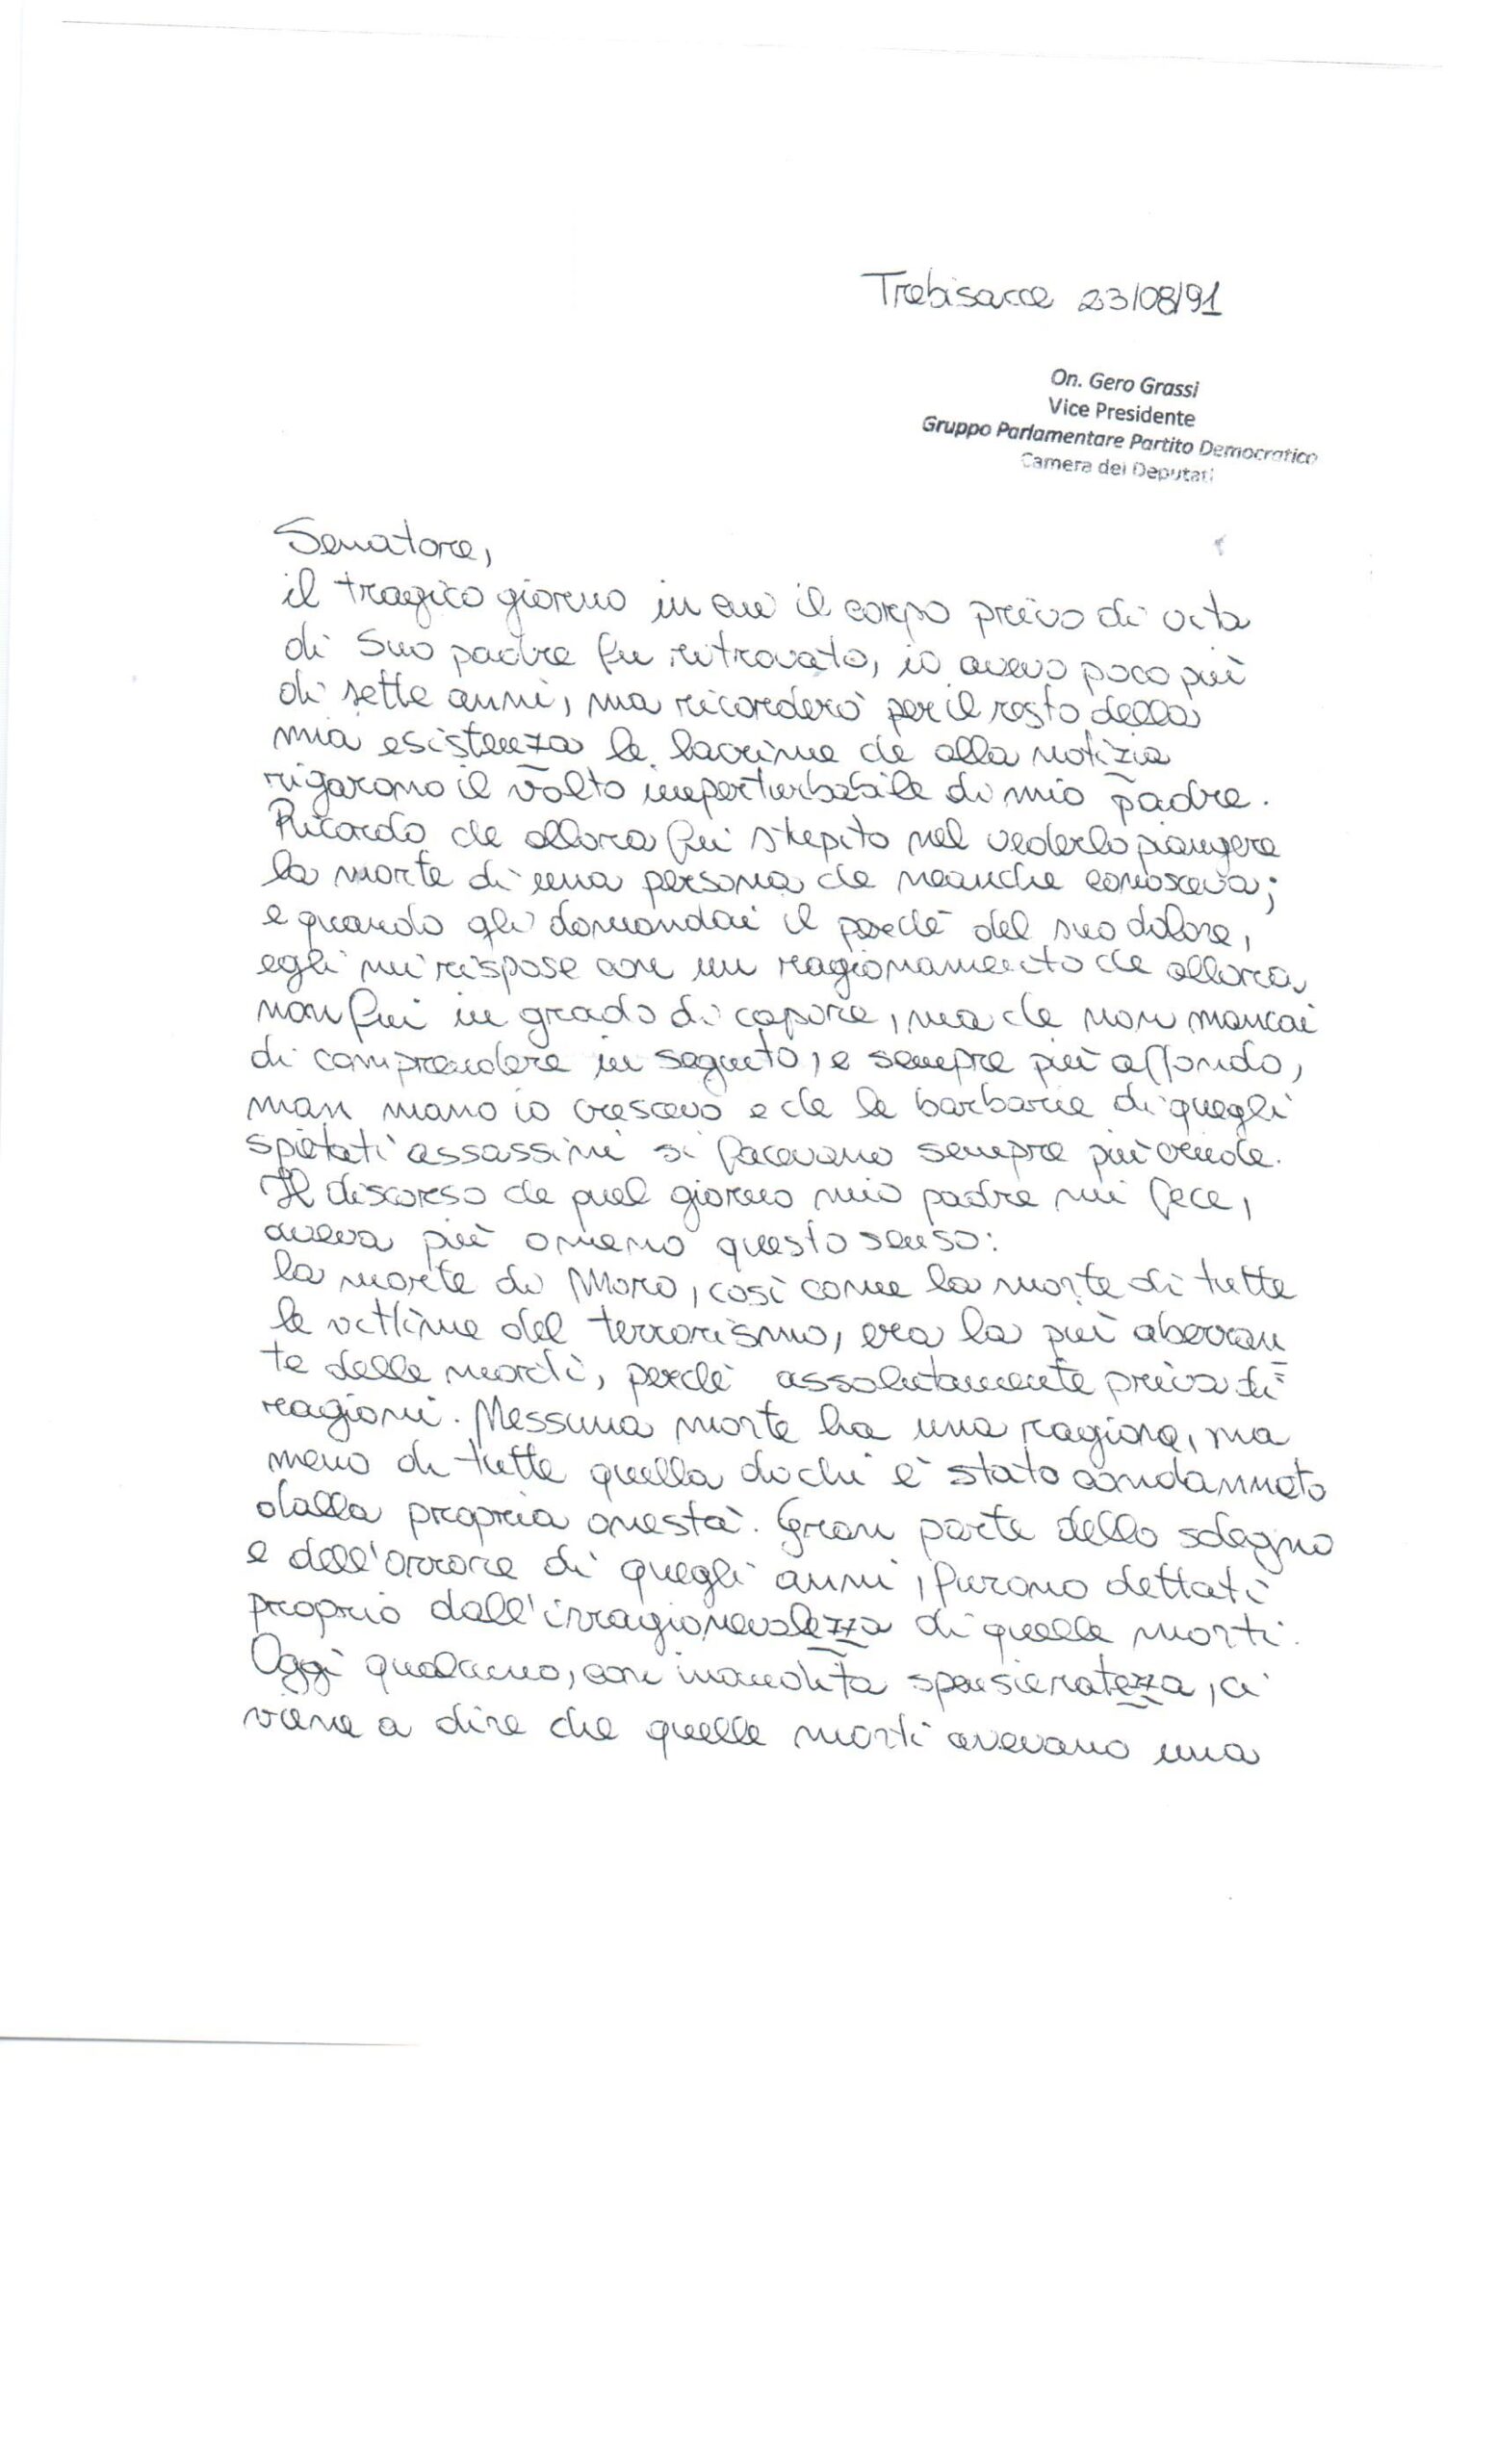 Trebisacce 23/08/91
On. Gero Grassi
Vice Presidente
Gruppo Parlamentare Partito Democratico
Camera dei Deputati
Senatore,
il tragico giorno in cui il corpo privo di vita
di Suo padre fu ritrovato, io avevo poco più
di sette anni, ma ricorderò per il resto della
mia esistenza le lacrime che alla notizia
rigarono il volto imperturbabile di mio padre.
Ricordo che allora fui stupito nel vederlo piangere
la morte di una persona che neanche conosceva;
e quando gli domandai il perchè del suo dolore,
egli mi rispose con un ragionamento che allora,
non fui in grado di capire, ma che non mancai
di comprendere in seguito, e sempre più affondo,
man mano io crescevo e che le barbarie di quegli
spietati assassini si facevano sempre più crude.
Il discorso che quel giorno mio padre mi fece,
aveva più o meno questo senso:
la morte di Moro, così come la morte di tutte
le vittime del terrorismo, era la più aberran
te delle morti, perchè assolutamente priva di
ragioni. Nessuna morte ha una ragione, ma
meno di tutte quella di chi è stato condannato
dalla propria onestà. Gran parte dello sdegno
e dell'orrore di quegli anni, furono dettati
proprio dall'irragionevolezza di quelle morti.
Oggi qualcuno, con inaudita spensieratezza, ci
viene a dire che quelle morti avevano una